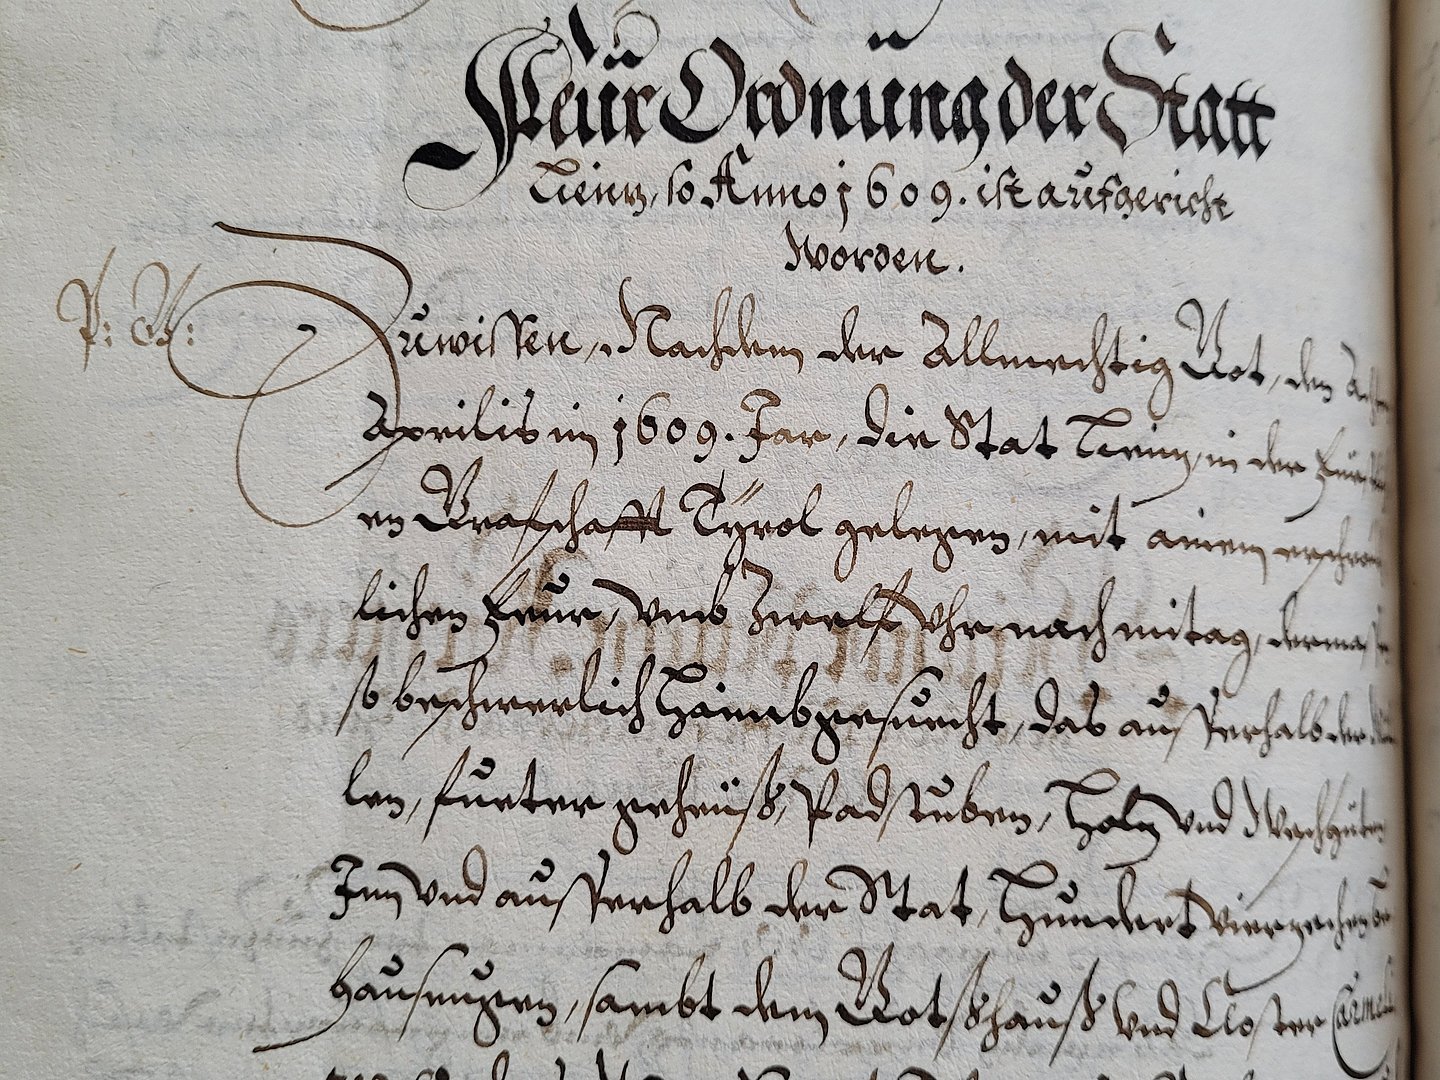 Feür Ordnüng der Statt
Lienz, so Anno 1609. ist aufgericht
worden.
P: G:
Zuwissen, Nachdem der Allmechtig Got, den
Aprilis im 1609. Jar, die Stat Lienz, in der
en Grafschafft Tÿrol gelegen, mit ainem
lichen Feur, vmb Zwelff Vhr nach mitag,
so beschwerlich haimbgesuecht, das ausserhalb der
len, fueter geheüß, Padstuben, Holz vnd
Inn vnd ausserhalb der Stat, Hundert vierzechen
hausungen, sambt dem Gotshauß vnd Closter